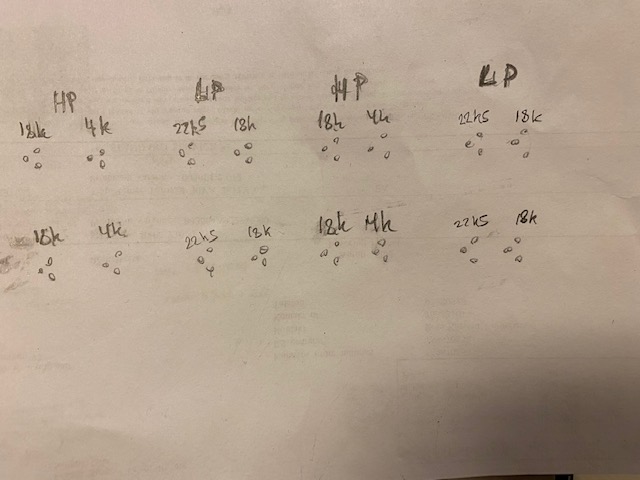 HP LP HP LP
18k 4k 22k5 18k 18k 4k 22k5 18k
18k 4k 22k5 18k 18k 4k 22k5 18k